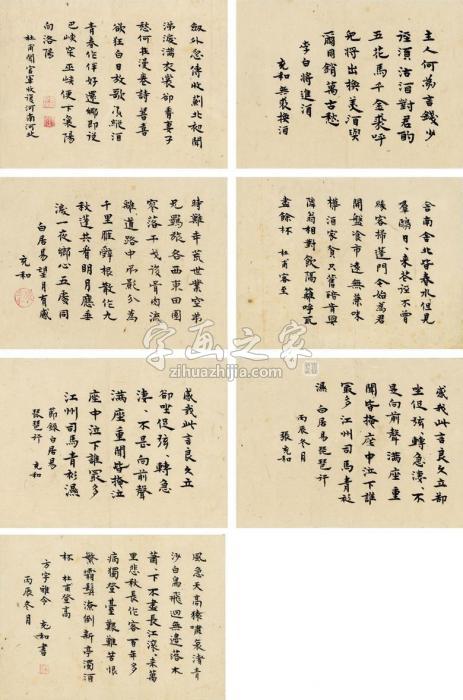 劍外忽傳收薊北初聞
涕淚滿衣裳卻看妻子
愁何在漫卷詩書喜
欲狂白日放歌須縱酒
青春作伴好還鄉即從
巴峽穿巫峽便下襄陽
向洛陽
杜甫聞官軍收復河南河北
主人何為言錢少
逕須沽酒對君酌
五花馬千金裘呼
兒將出換美酒與
爾同銷萬古愁
李白將進酒
充和無裘換酒
時難年荒世業空弟
兄羈旅各西東田園
寥落干戈後骨肉流
離道路中吊影分為
千里雁辭根散作九
秋蓬共看明月應垂
淚一夜鄉心五處同
白居易望月有感
充和
舍南舍北皆春水但見
羣鷗日〻來花徑不曾
緣客掃蓬門今始為君
開盤飧市遠無兼味
樽酒家貧只舊醅肯與
鄰翁相對飲隔籬呼取
盡餘杯 杜甫客至
字画之家
zihuazhijia.com
感我此言良久立
卻坐促弦〻轉急
淒〻不是向前聲
滿座重聞皆掩泣
座中泣下誰最多
江州司馬青衫濕
節錄白居易
琵琶行 充和
感我此言良久立卻
坐促弦〻轉急淒〻不
是向前聲滿座重
聞皆掩泣座中泣下誰
最多江州司馬青衫
濕 白居易琵琶行
丙辰冬月
張充和
風急天高猿嘯哀渚清
沙白鳥飛迴無邊落木
蕭〻下不盡長江滾〻來萬
里悲秋長作客百年多
病獨登臺艱難苦恨
繁霜鬢潦倒新亭濁酒
杯 杜甫登高
方宇雅令 充和書
丙辰冬月